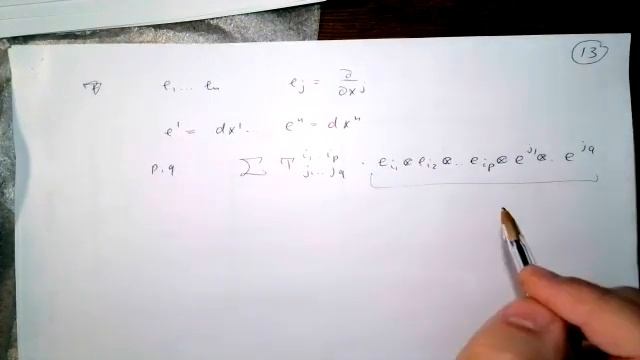 13
e₁ ... eₙ   eⱼ = ∂/∂xⱼ
e¹ = dx¹ ... eⁿ = dxⁿ
p, q   ∑ T^{i₁ ... i_p}_{j₁ ... j_q} · e_{i₁} ⊗ e_{i₂} ⊗ ... e_{i_p} ⊗ e^{j₁} ⊗ ... e^{j_q}